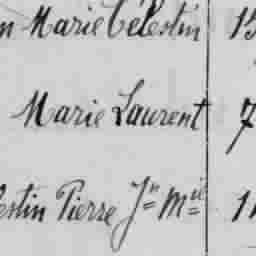 n Marie Célestin 15
Marie Laurent 7
estin Pierre Jn Mie 11